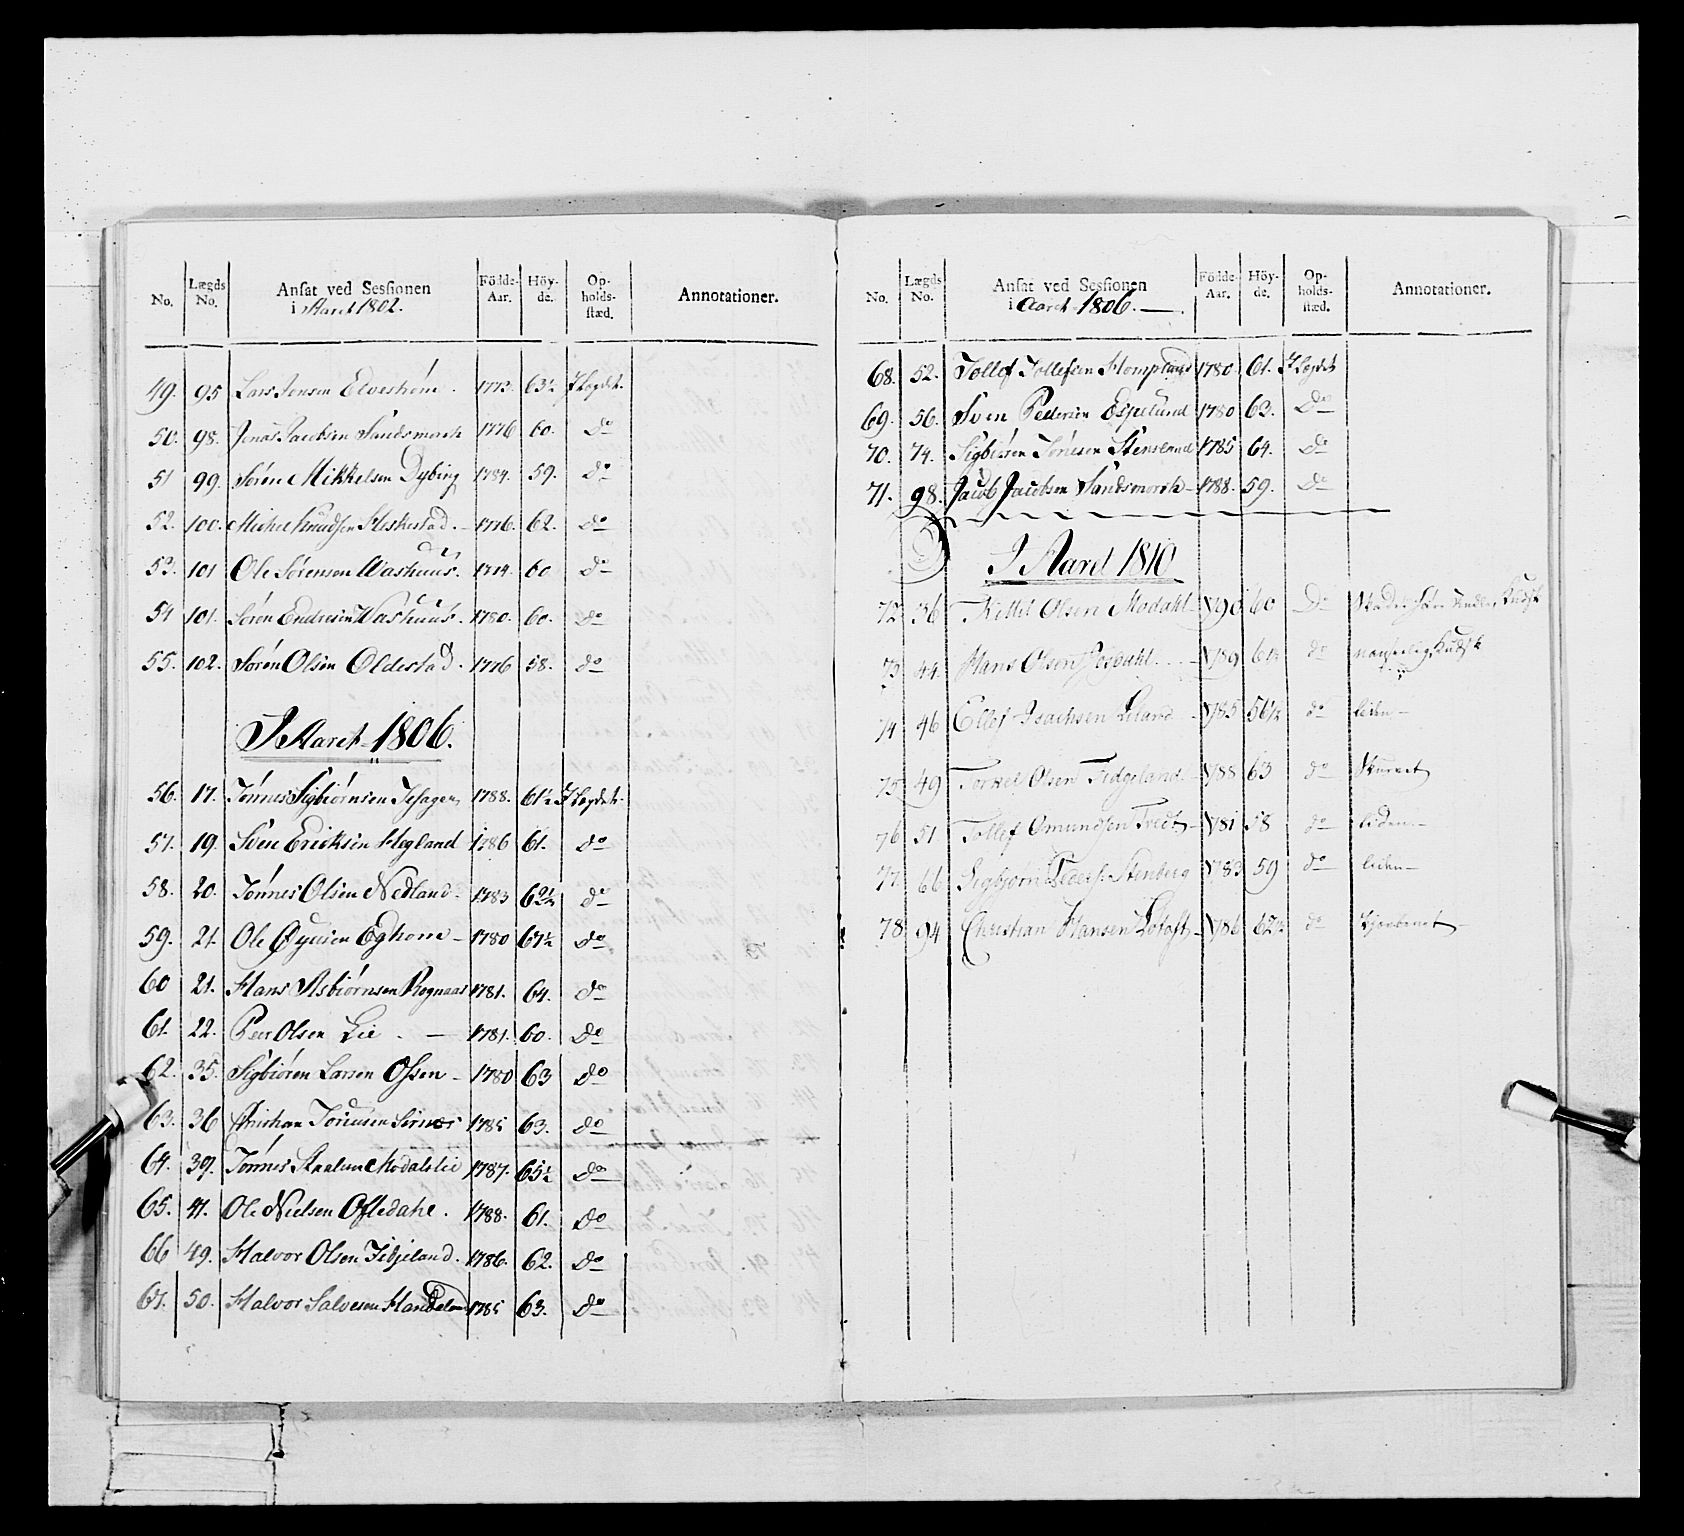 No. Lægds No. Ansat ved Sessionen i Aaret 1802. Födde-Aar. Höy-de. Op-holds-stæd. Annotationer.
49. 95 Lars Jensen Elvestrøm. 1773. 63½ I Legdet.
50. 98. Jonas Jacobsen Sandsmark 1776 60. do
51 99. Søren Mikkelsen Dybing 1784. 59. do
52. 100. Michel Knudsen Heskestad. 1776. 62. do
53. 101 Ole Sørensen Washuus. 60 do
54 101. Søren Endresen Washuus. 1780. 60. do
55. 102. Søren Olsen Oldestad. 1776 58. do
I Aaret 1806.
56. 17. Tønnes Sigbiørnsen 1788. 61½ I Legdet.
57. 19. Sven Eriksen Hegland 1786 61. do
58. 20. Tønnes Olsen Nedland. 1783 62½ do
59. 21. Ole Eghom 1780 61½ do
60 21. Hans Asbiørnsen Rognaas 1781. 64. do
61. 22. Peer Olsen Lie 1781. 60. do
62. 35. Sigbiøren Larsen Ossen 1780 63 do
63. 36 1785 63. do
64. 39. Tønnes Modalslie 1787. 65½ do
65. 41. Ole Nielsen Ofledahl. 1788. 61. do
66 49. Halvor Olsen Fidjeland. 1786. 62. do
67. 50. Halvor Salvesen Handeland 1785 63. do
No. Lægds No. Ansat ved Sessionen i Aaret 1806. Födde-Aar. Höy-de. Op-holds-stæd. Annotationer.
68. 52. Tollef Tollefsen Hompland 1780. 61. I Legdet
69. 56. Sven Pedersen Espelund 1780 63. Do
70. 74. Sigbiøren Stensland 1785 64. Do
71. 98. Jacob Jacobsen Sandsmork 1788. 59. Do
I Aaret 1810
72. 36 Kittil Olsen Modahl 1790 60 Do
73 44. Hans Olsen 1789 61½ do
74 46 Ellef Isachsen Leland 1785 56½ do liden
75 49 Torkel Olsen Fidgeland 1788 63 do
76 51. Tollef Omundsen Tredt 1781 58 do liden
77. 66 Segbjørn Peders: Stenberg 1783 59 do liden
78. 94 Christian Hansen Lotoft 1786 62½ do